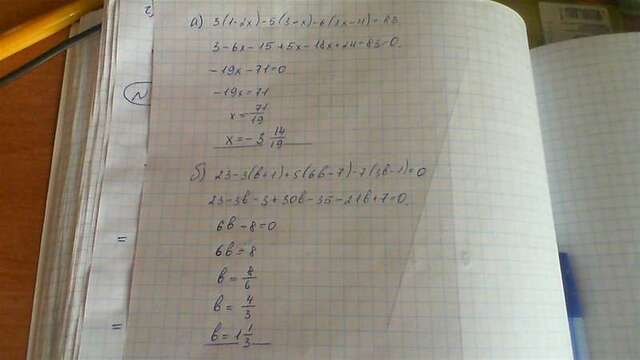 а) 3(1-2x)-5(3-x)-6(3x-4)=83
3-6x-15+5x-18x+24-83=0.
-19x-71=0
-19x=71
x=-71/19
x=-3 14/19
б) 23-3(b+1)+5(6b-7)-7(3b-1)=0
23-3b-3+30b-35-21b+7=0.
6b-8=0
6b=8
b=8/6
b=4/3
b=1 1/3